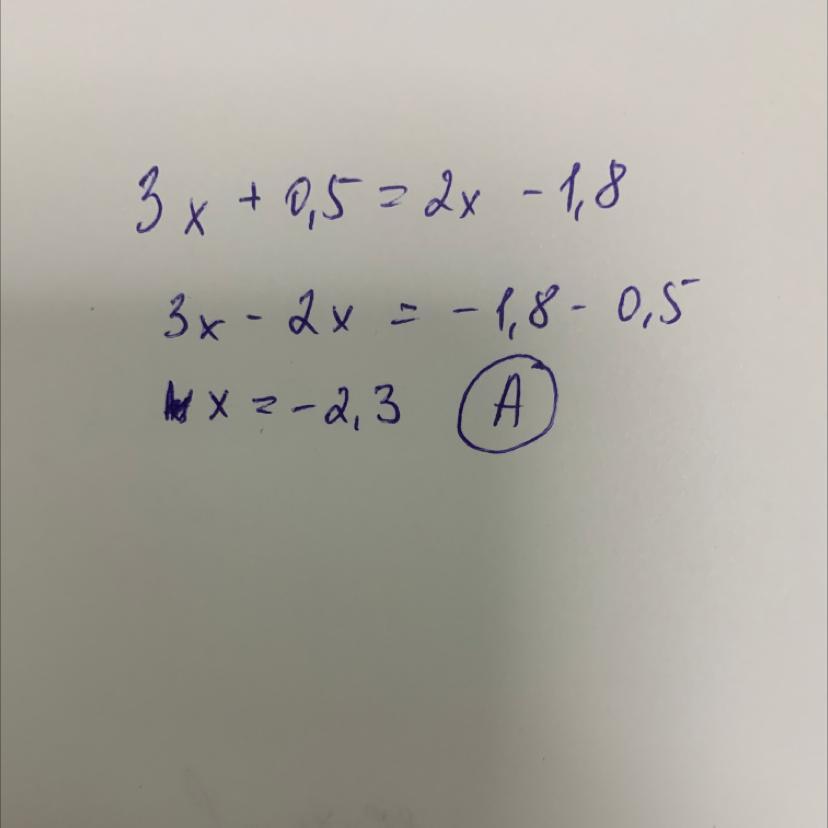 3x + 0,5 = 2x - 1,8
3x - 2x = -1,8 - 0,5
x = -2,3 A